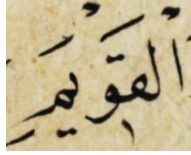 الْقَوِيْمَ